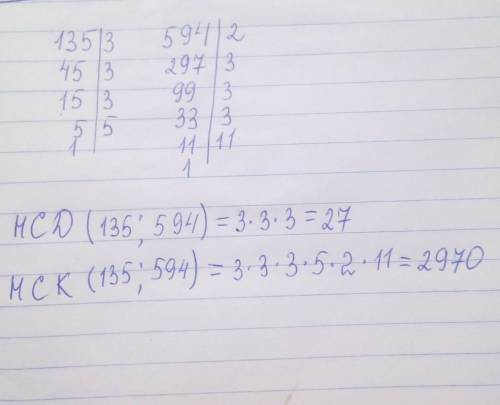 135|3 594|2
45|3 297|3
15|3 99|3
5|5 33|3
1 11|11
1
НСД (135; 594) = 3·3·3 = 27
НСК (135; 594) = 3·3·3·5·2·11 = 2970